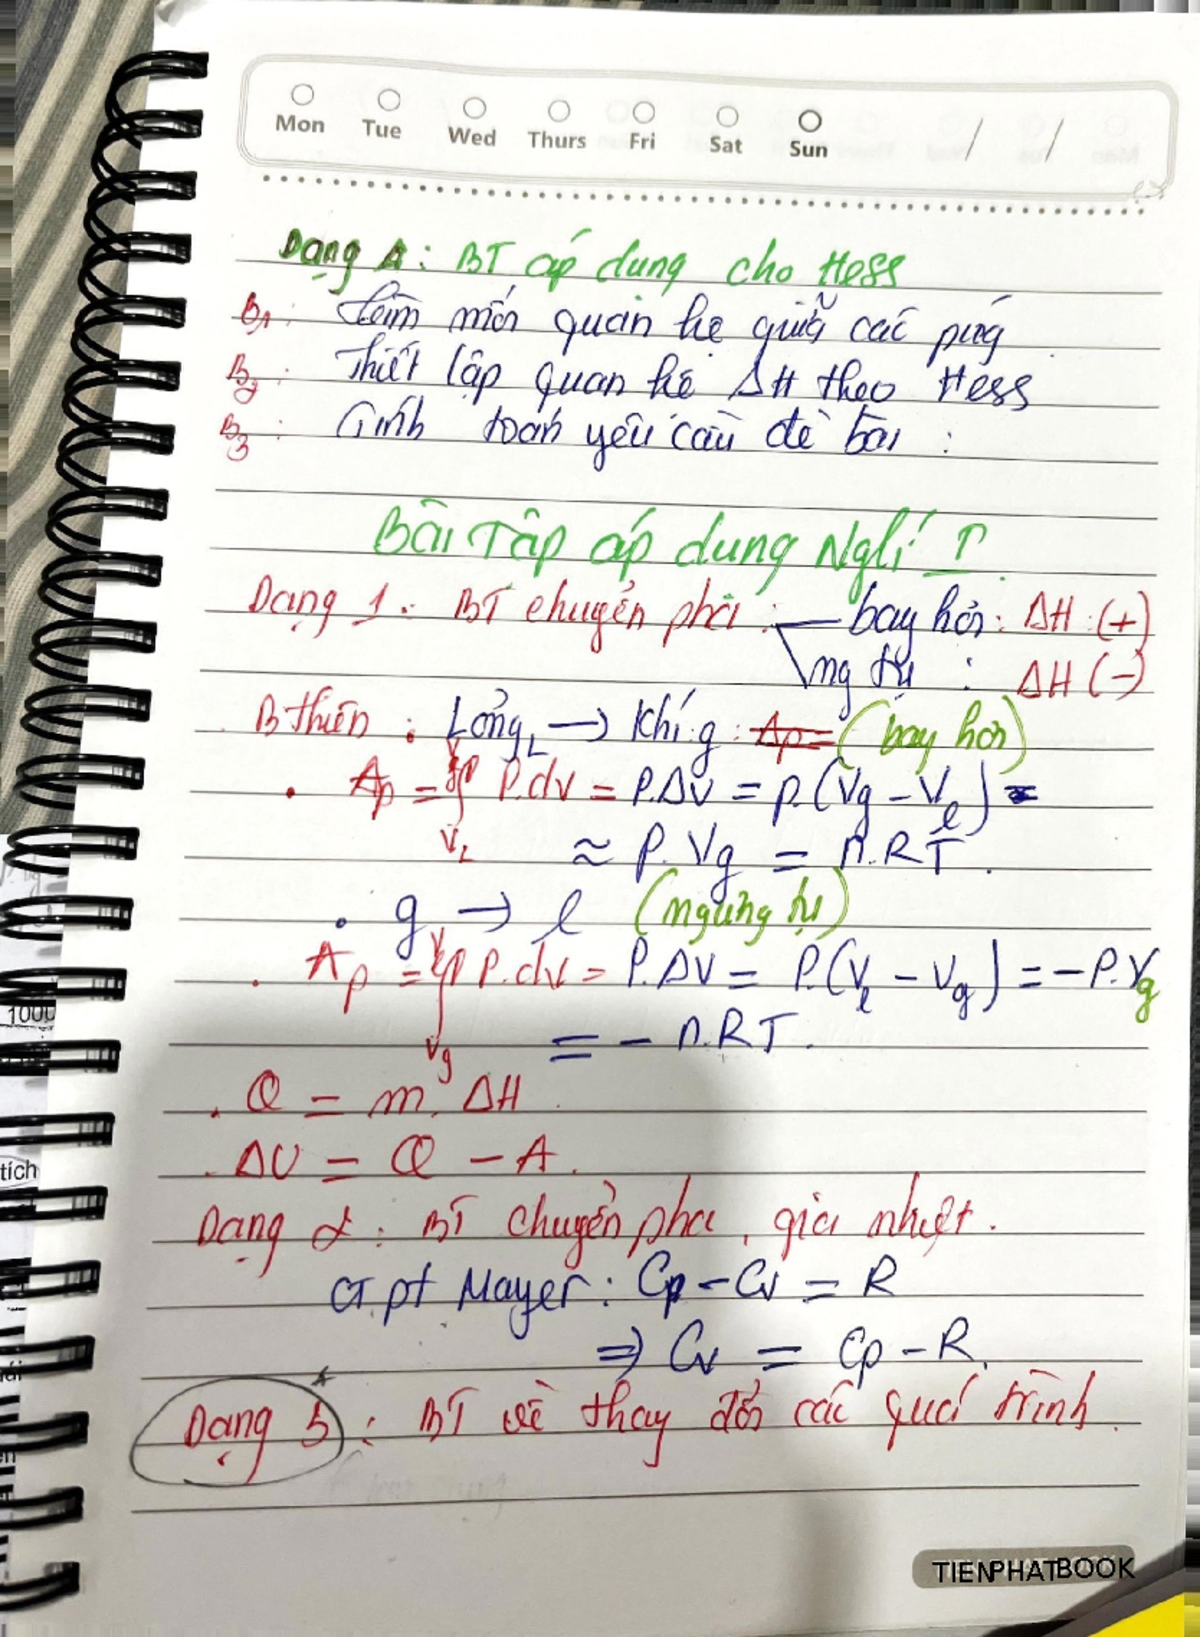 Mon Tue Wed Thurs Fri Sat Sun / /
Dạng A: BT áp dụng cho Hess
B1: tìm mối quan hệ giữa các pứng
B2: Thiết lập quan hệ ΔH theo Hess
B3: Tính toán yêu cầu đề bài:
Bài Tập áp dụng Nglí I
Dạng 1: BT chuyển pha: bay hơi: ΔH: (+)
ng tụ: ΔH (-)
B thiên: Lỏng L → Khí g: Ap= (bay hơi)
. Ap = ∫ P.dv = P.ΔV = p.(Vg - Vl) =
≈ P.Vg = n.RT.
. g → l (ngưng tụ)
. Ap = ∫ P.dv = P.ΔV = P.(Vl - Vg) = -P.Vg
= - n.RT.
. Q = m. ΔH
. ΔU = Q - A.
Dạng 2: BT chuyển pha, giải nhiệt.
CT pt Mayer: Cp - Cv = R
⇒ Cv = Cp - R.
Dạng 3: BT về thay đổi các quá trình.
TIENPHATBOOK
1000
tích